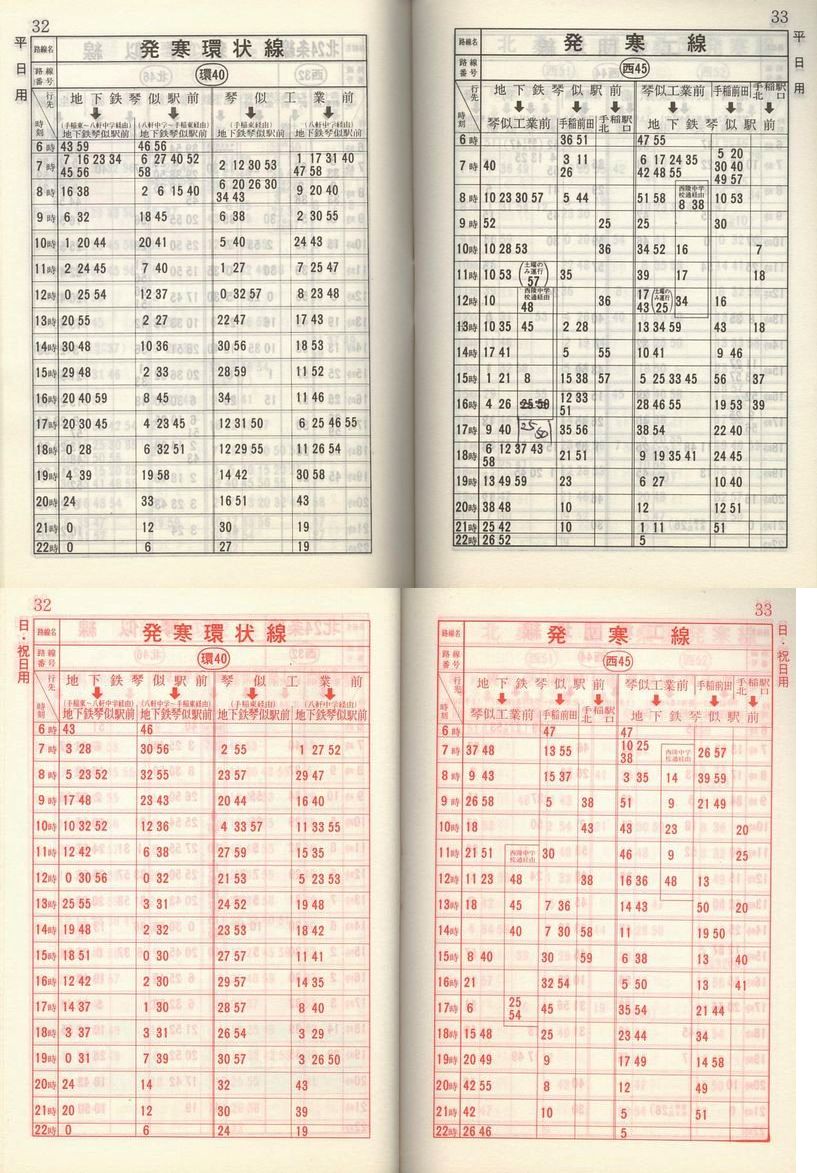 32
平日用
路線名 発寒環状線
路線番号 環40
行先 時刻
地下鉄琴似駅前 琴似工業前
(手稲東〜八軒中学経由) 地下鉄琴似駅前 (八軒中学〜手稲東経由) 地下鉄琴似駅前 (手稲東経由) 地下鉄琴似駅前 (八軒中学経由) 地下鉄琴似駅前
6時 43 59 46 56
7時 7 16 23 34 45 56 6 27 40 52 58 2 12 30 53 1 17 31 40 47 58
8時 16 38 2 6 15 40 6 20 26 30 34 43 9 20 40
9時 6 32 18 45 6 38 2 30 55
10時 1 20 44 20 41 5 40 24 43
11時 2 24 45 7 40 1 27 7 25 47
12時 0 25 54 12 37 0 32 57 8 23 48
13時 20 55 2 27 22 47 17 43
14時 30 48 10 36 30 56 18 53
15時 29 48 2 33 28 59 11 52
16時 20 40 59 8 45 34 11 46
17時 20 30 45 4 23 45 12 31 50 6 25 46 55
18時 0 28 6 32 51 12 29 55 11 26 54
19時 4 39 19 58 14 42 30 58
20時 24 33 16 51 43
21時 0 12 30 19
22時 0 6 27 19
33
平日用
路線名 発寒線
路線番号 西45
行先 時刻
地下鉄琴似駅前 琴似工業前 手稲前田 手稲駅北口
琴似工業前 手稲前田 手稲駅北口 地下鉄琴似駅前
6時 36 51 47 55
7時 40 3 11 26 6 17 24 35 42 48 55 5 20 30 40 49 57
8時 10 23 30 57 5 44 51 58 西陵中学校通経由 8 38 10 53
9時 52 25 25 30
10時 10 28 53 36 34 52 16 7
11時 10 53 (土曜のみ運行 57) 35 39 17 18
12時 10 西陵中学校通経由 48 36 17 43 (土曜のみ運行 25) 34 16
13時 10 35 45 2 28 13 34 59 43 18
14時 17 41 5 55 10 41 9 46
15時 1 21 8 15 38 57 5 25 33 45 56 37
16時 4 26 25 50 12 33 51 28 46 55 19 53 39
17時 9 40 25 50 35 56 38 54 22 40
18時 6 12 37 43 58 21 51 9 19 35 41 24 45
19時 13 49 59 23 6 27 10 40
20時 38 48 10 12 12 51
21時 25 42 10 1 11 51
22時 26 52 5
32
日・祝日用
路線名 発寒環状線
路線番号 環40
行先 時刻
地下鉄琴似駅前 琴似工業前
(手稲東〜八軒中学経由) 地下鉄琴似駅前 (八軒中学〜手稲東経由) 地下鉄琴似駅前 (手稲東経由) 地下鉄琴似駅前 (八軒中学経由) 地下鉄琴似駅前
6時 43 46
7時 3 28 30 56 2 55 1 27 52
8時 5 23 52 32 55 23 57 29 47
9時 17 48 23 43 20 44 16 40
10時 10 32 52 12 36 4 33 57 11 33 55
11時 12 42 6 38 27 59 15 35
12時 0 30 56 0 32 21 53 5 23 53
13時 25 55 3 31 24 52 19 48
14時 19 48 2 32 23 53 18 42
15時 18 51 0 30 27 57 11 41
16時 12 42 2 30 29 57 14 35
17時 14 37 1 30 28 57 8 40
18時 3 37 3 31 26 54 3 29
19時 0 31 7 39 30 57 3 26 50
20時 24 14 32 43
21時 20 12 30 39
22時 0 6 24 19
33
日・祝日用
路線名 発寒線
路線番号 西45
行先 時刻
地下鉄琴似駅前 琴似工業前 手稲前田 手稲駅北口
琴似工業前 手稲前田 手稲駅北口 地下鉄琴似駅前
6時 47 47
7時 37 48 13 55 10 25 38 西陵中学校通経由 26 57
8時 9 43 15 37 3 35 14 39 59
9時 26 58 5 38 51 9 21 49
10時 18 43 43 23 20
11時 21 51 西陵中学校通経由 30 46 9 25
12時 11 23 48 38 16 36 48 13
13時 18 45 7 36 14 43 50 20
14時 40 7 30 58 11 19 50
15時 8 40 30 59 6 38 13 40
16時 21 32 54 5 50 13 41
17時 6 25 54 45 35 54 21 44
18時 15 48 25 23 44 34
19時 20 49 9 17 49 14 58
20時 42 55 8 12 49
21時 42 10 5 51
22時 26 46 5